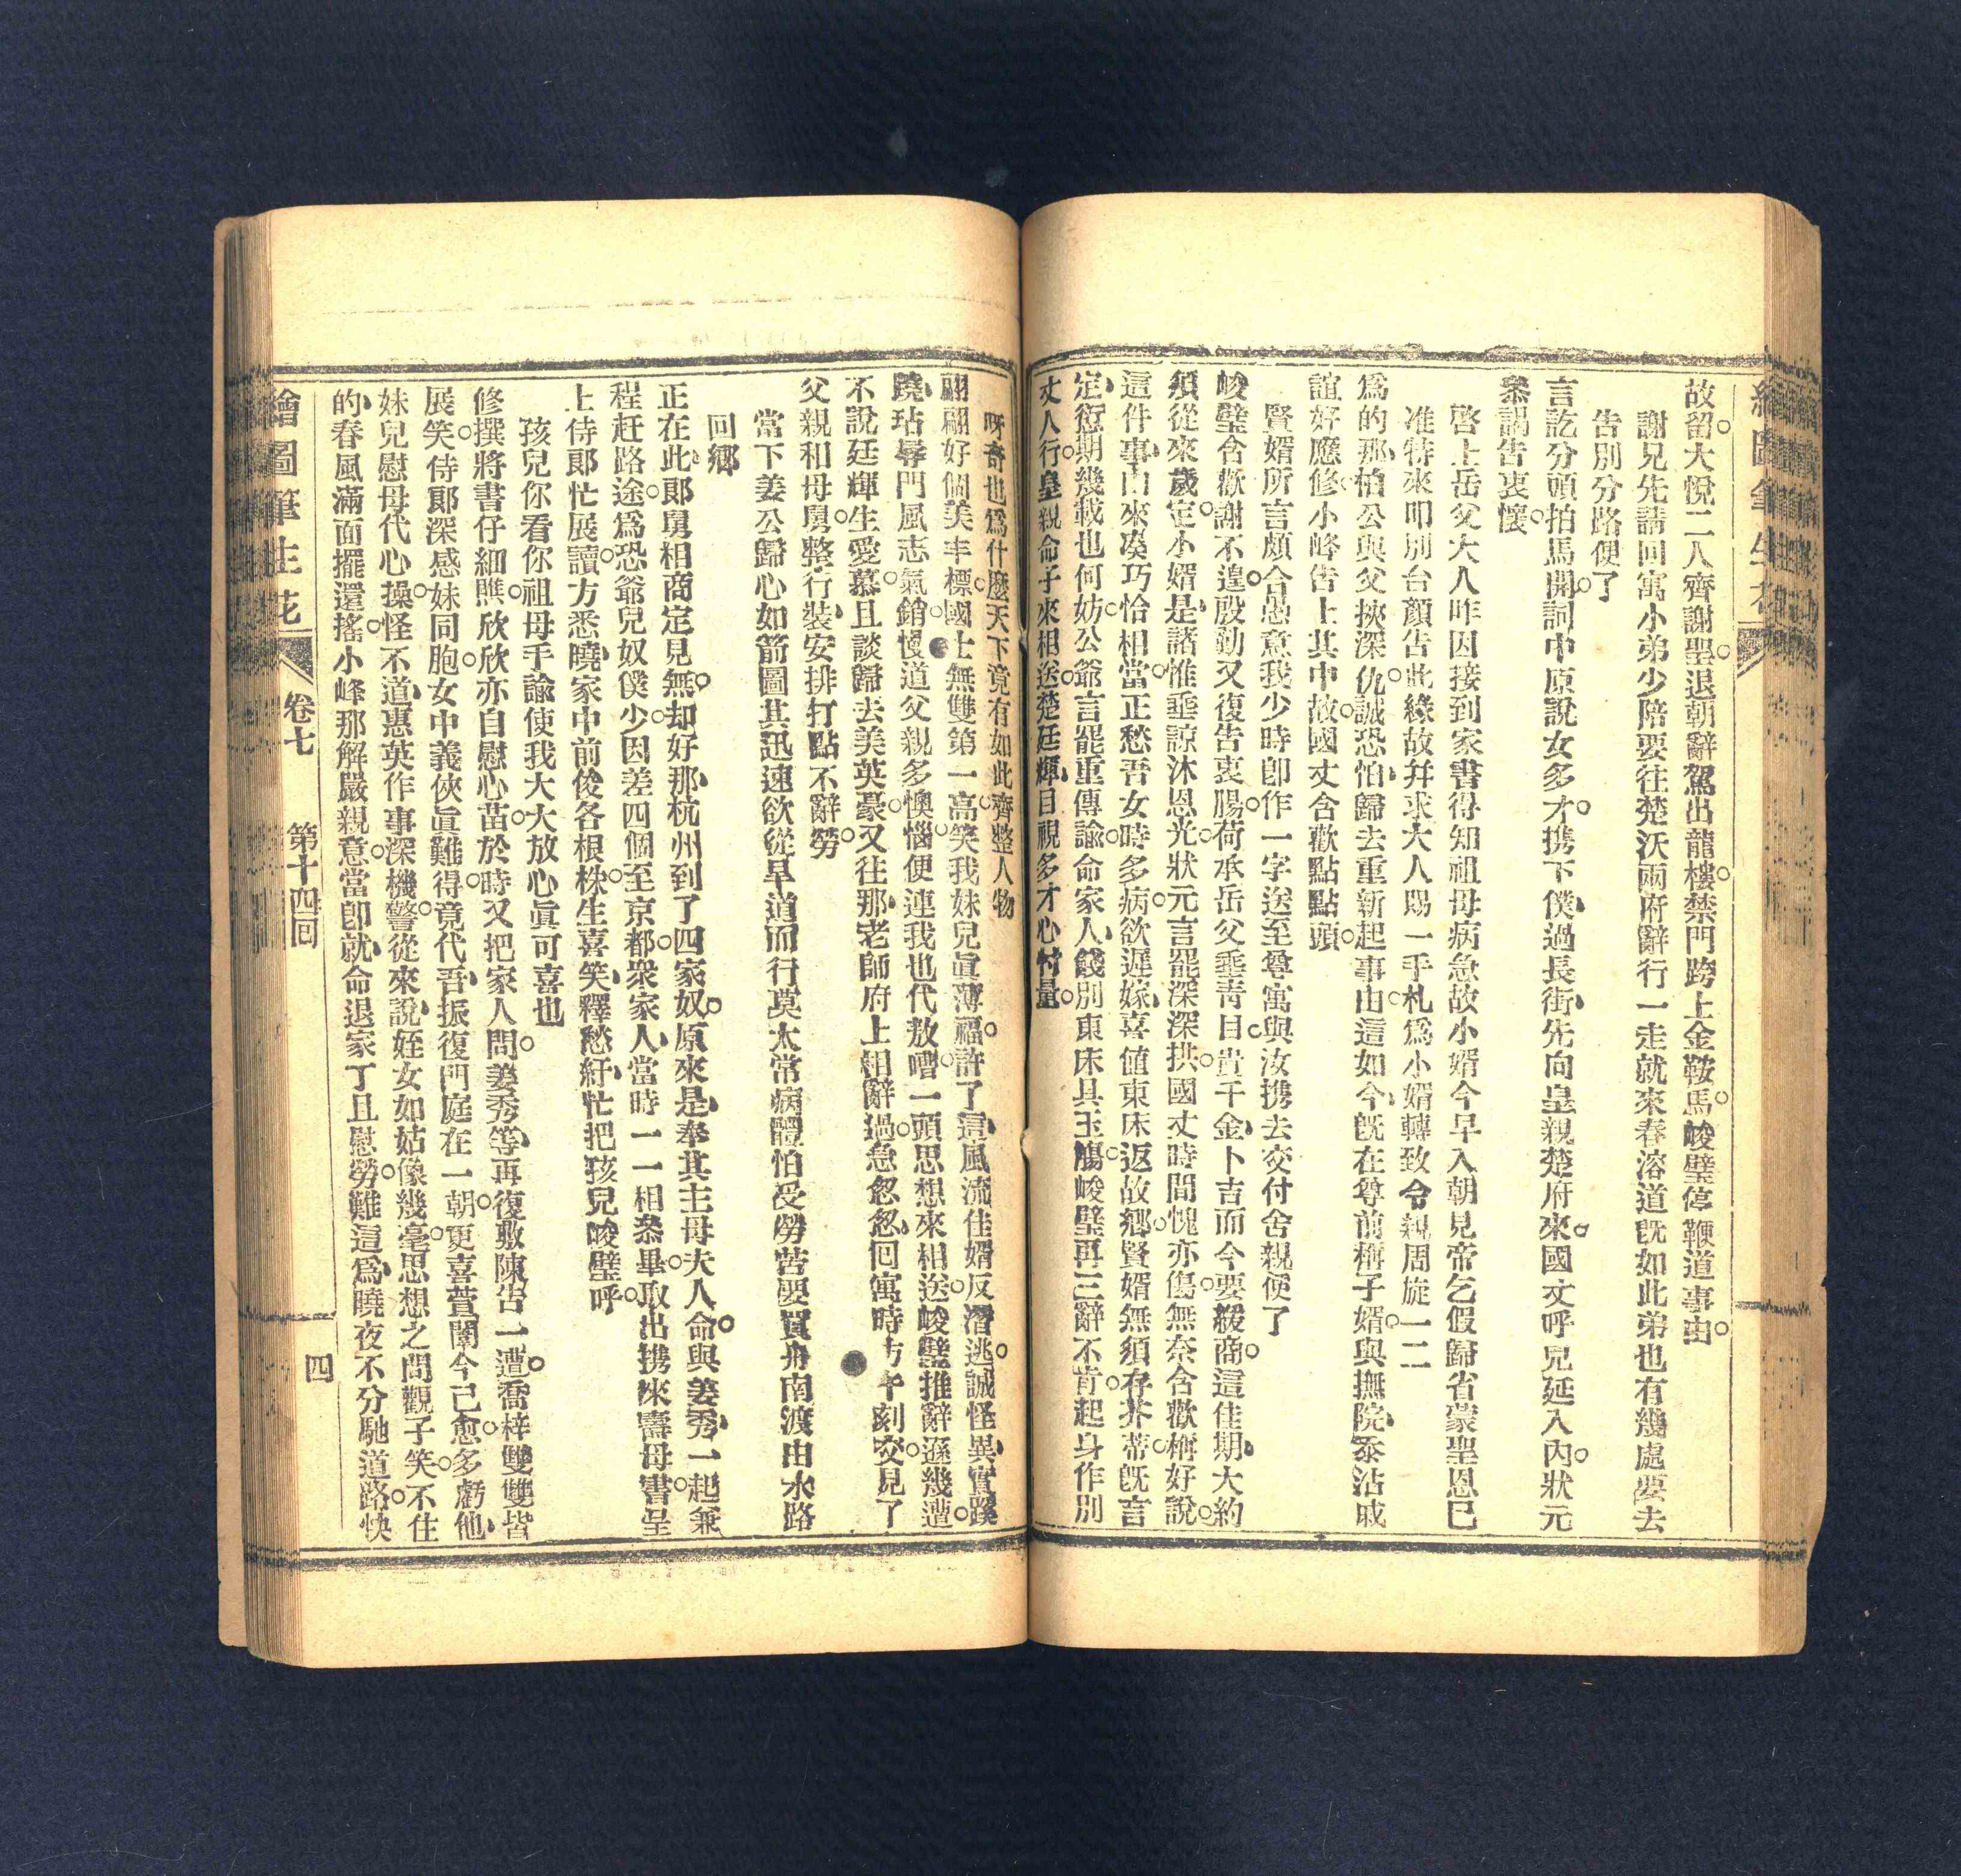 故留大悅二人齊謝聖退朝辭駕出龍樓禁門跨上金鞍馬峻璧停鞭道事由
謝兄先請回寓小弟少陪要往楚沃兩府辭行一走就來春溶道旣如此弟也有幾處要去
告別分路便了
言訖分頭拍馬開詞中原說女多才携下僕過長街先向皇親楚府來國丈呼兄延入內狀元
叅謁告衷懷
啓上岳父大人昨因接到家書得知祖母病急故小婿今早入朝見帝乞假歸省蒙聖恩已
准特來叩別台顏告此緣故幷求大人賜一手札爲小婿轉致令親周旋一二
爲的那柏公與父挾深仇誠恐怕歸去重新起事由這如今旣在尊前稱子婿與撫院忝沾戚
誼好應修小峰告上其中故國丈含歡點點頭
賢婿所言頗合愚意我少時卽作一字送至尊寓與汝携去交付舍親便了
峻璧含歡謝不遑殷勤又復告衷腸荷承岳父垂靑目貴千金卜吉而今要緩商這佳期大約
須從來歲定小婿是諸惟垂諒沐恩光狀元言罷深深拱國丈時間愧亦傷無奈含歡稱好說
這件事由來凑巧恰相當正愁吾女時多病欲遲嫁喜値東床返故鄉賢婿無須存芥蒂旣言
定愆期幾載也何妨公爺言罷重傳諭命家人餞別東床具玉觴峻璧再三辭不肯起身作別
丈人行皇親命子來相送楚廷輝目視多才心忖量
呀奇也爲什麼天下竟有如此齊整人物
翩翩好個美丰標國士無雙第一高笑我妹兒眞薄福許了這風流佳婿反潛逃誠怪異實蹊
蹺玷辱門風志氣銷慢道父親多懊惱便連我也代敖嘈一頭思想來相送峻璧推辭遜幾遭
不說廷輝生愛慕且談歸去美英豪又往那老師府上相辭過急忽忽囘寓時方午刻交見了
父親和母舅整行裝安排打點不辭勞
當下姜公歸心如箭圖其迅速欲從旱道而行莫太常病體怕受勞苦要買舟南渡由水路
回鄉
正在此郎舅相商定見無却好那杭州到了四家奴原來是奉其主母夫人命與姜秀一起兼
程赶路途爲恐爺兒奴僕少因差四個至京都衆家人當時一一相叅畢取出携來壽母書呈
上侍郎忙展讀方悉曉家中前後各根株生喜笑釋愁紆忙把孩兒峻璧呼
孩兒你看你祖母手諭使我大大放心眞可喜也
修撰將書仔細瞧欣欣亦自慰心苗於時又把家人問姜秀等再復敷陳告一遭喬梓雙雙皆
展笑侍郎深感妹同胞女中義俠眞難得竟代吾振復門庭在一朝更喜萱闈今已愈多虧他
妹兒慰母代心操怪不道惠英作事深機警從來說姪女如姑像幾毫思想之間觀子笑不住
的春風滿面擺還搖小峰那解嚴親意當卽就命退家丁且慰勞難這爲曉夜不分馳道路快
繪圖筆生花
卷七
第十四囘
四